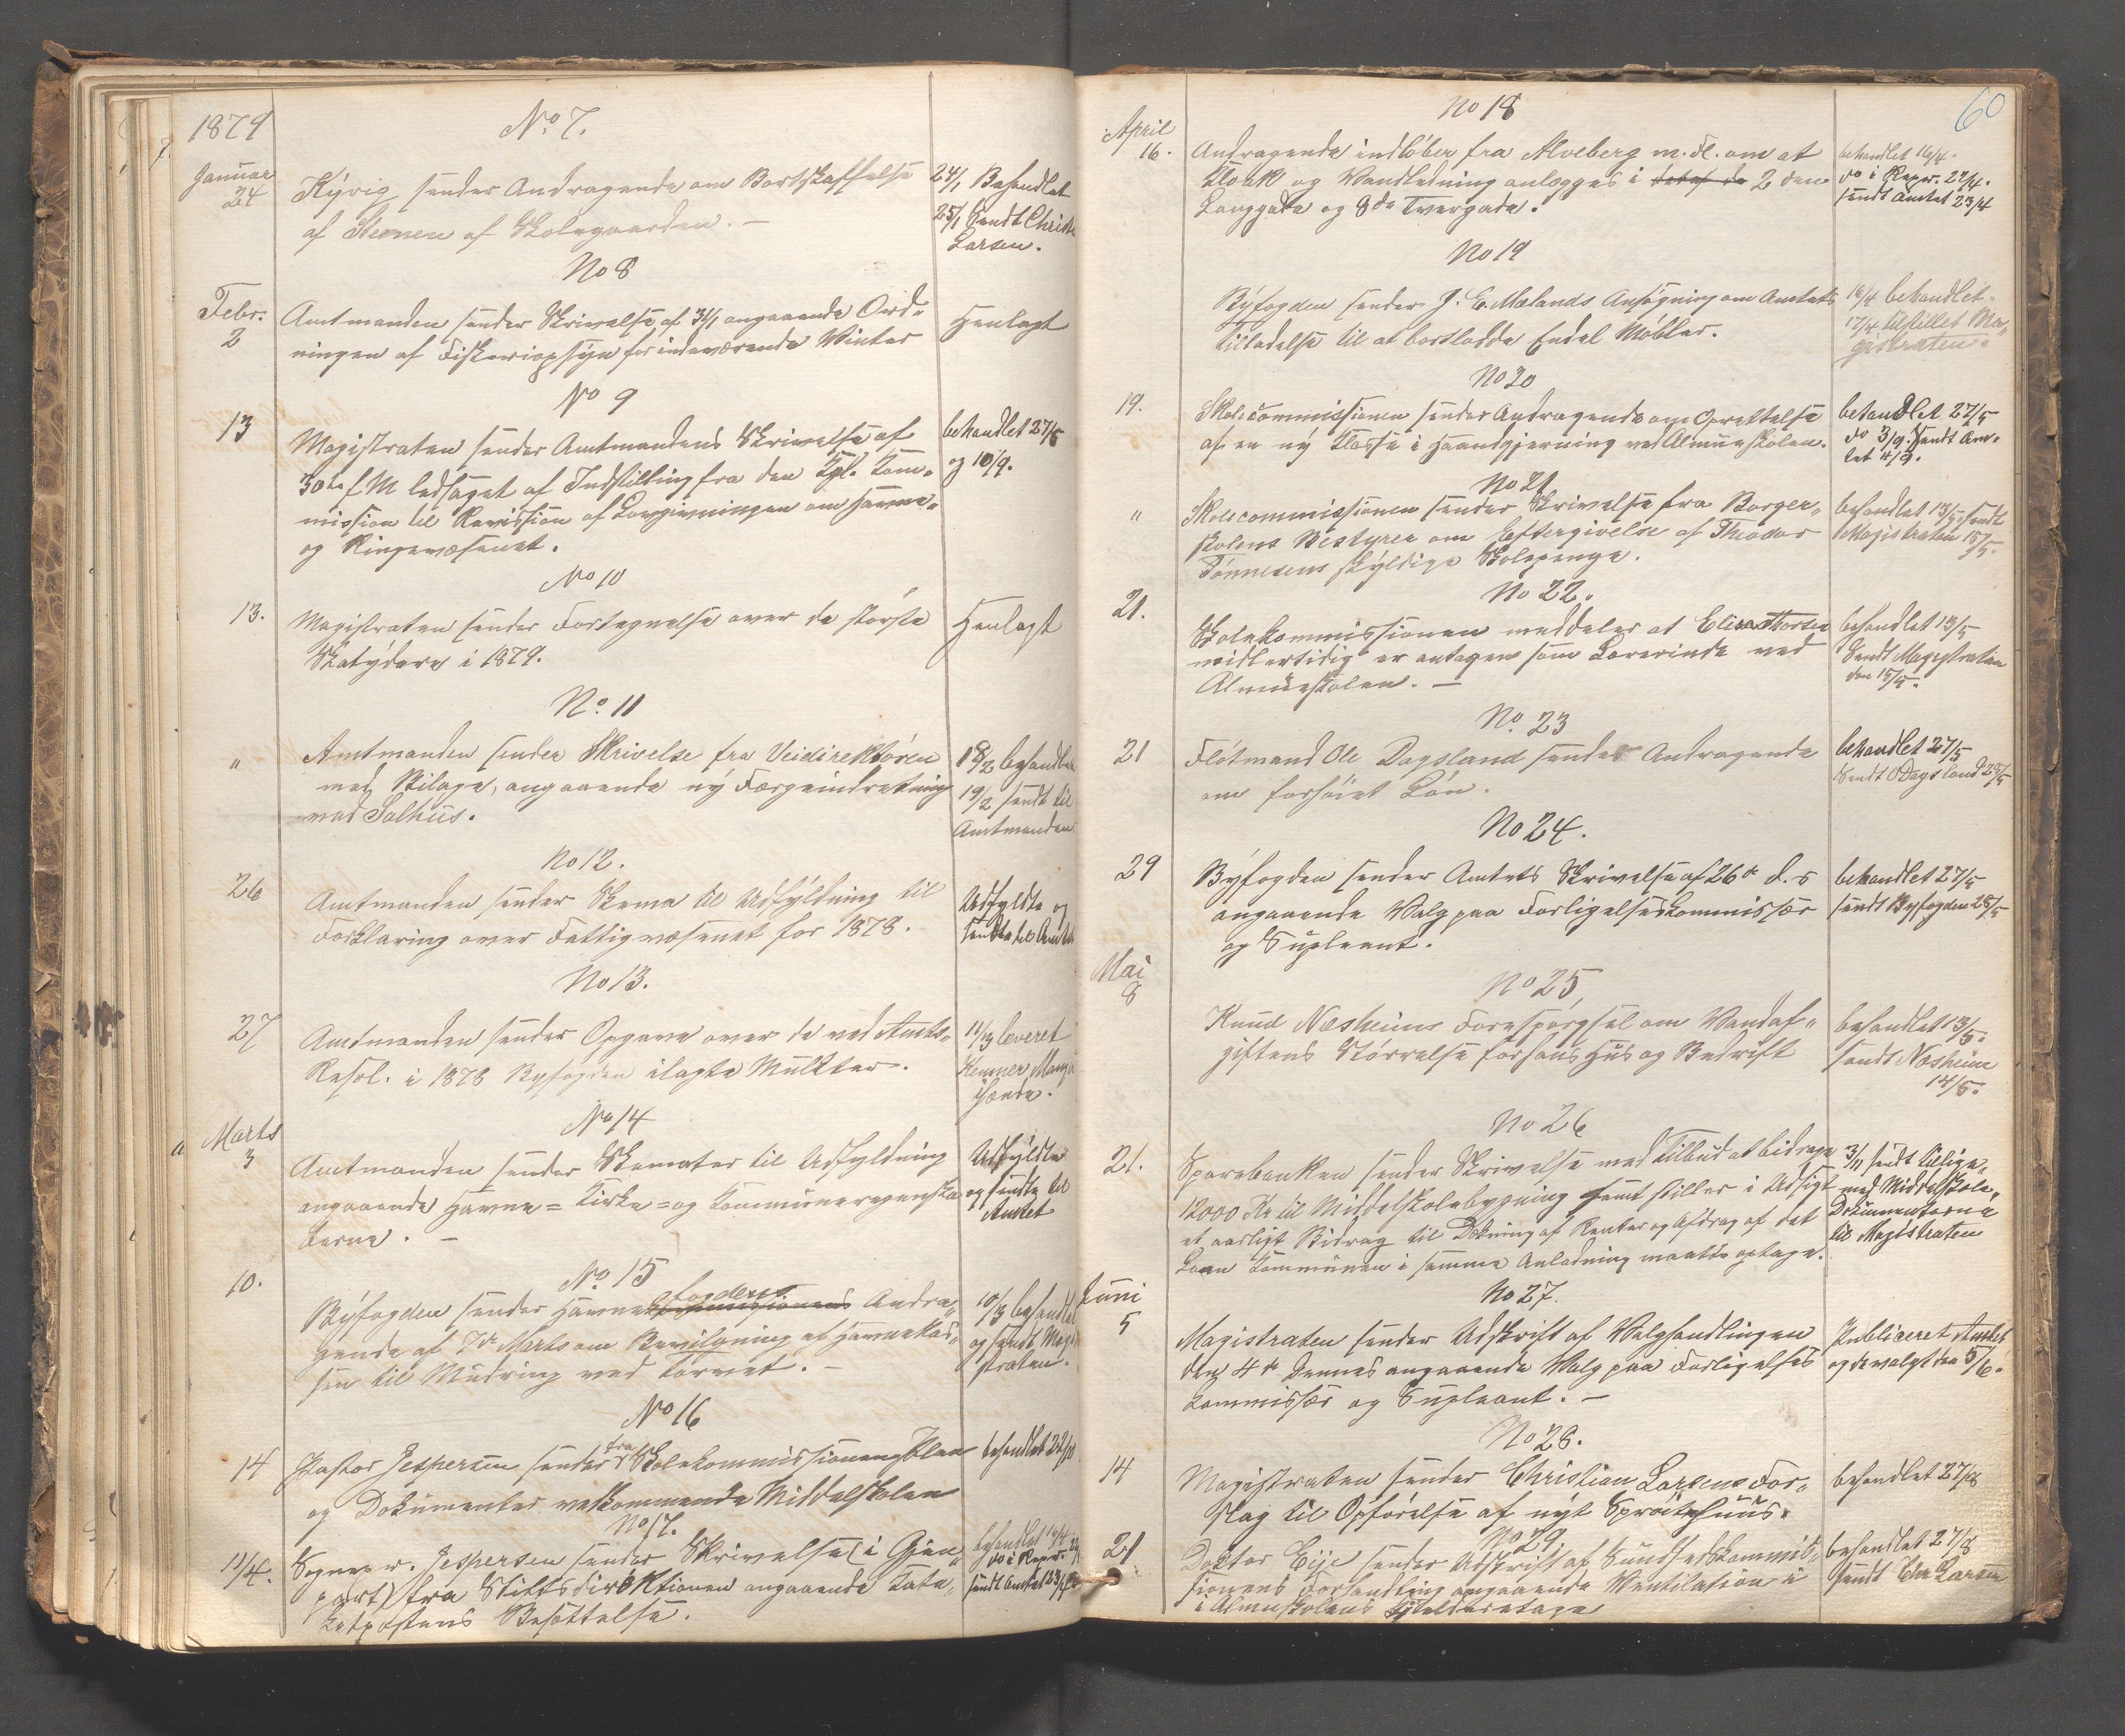 1879
No 7.
Januar
24
Kyvig sender Andragende om Bortskaffelse
af Stenen af Skolegaarden. —
24/1 Behandlet
25/1 Sendt Christ
Larsen.
No 8
Febr.
2
Amtmanden sender Skrivelse af 31/1 angaaende Ord-
ningen af Fiskeriopsyn for indeværende Vinter
Henlagt
No 9
13
Magistraten sender Amtmandens Skrivelse af
30te f. M ledsaget af Indstilling fra den Kgl. Kom-
mission til Revission af Lovgivningen om Havne-
og Ringevæsenet.
behandlet 27/5
og 10/9.
No 10
13.
Magistraten sender Fortegnelse over de største
Skatydere i 1879.
Henlagt
No. 11
"
Amtmanden sender Skrivelse fra Veidirektøren
med Bilage, angaaende ny Færgeindretning
ved Salhus.
18/2 behandlet
19/2 sendt til
Amtmanden
No 12.
26
Amtmanden sender Skema til Udfyldning til
Forklaring over Fattigvæsenet for 1878.
Udfyldte og
sendte til Amtet
No 13.
27
Amtmanden sender Opgave over de ved Amts-
Resol. i 1878 Byfogden ilagte Mulkter.
11/3 leveret
Kemner Mange
ihænde.
No 14
Marts
3
Amtmanden sender Skemater til Udfyldning
angaaende Havne= Kirke= og Kommuneregnska-
berne. —
Udfyldte
og sendte til
Amtet
No. 15
10.
fogdens
Byfogden sender Havnekommissionens Andra-
gende af 7de Marts om Bevilgning af Havnekas-
sen til Mudring ved Torvet. —
10/3 behandlet
og sendt Magi-
straten.
No 16
14
fra
Pastor Jespersen sender Skolekommissionens Plan
og Dokumenter vedkommende Middelskolen
behandlet 22/10
No 17.
11/4.
Sognepr. Jespersen sender Skrivelse (i Gjen-
part) fra Stiftsdirektionen angaaende Kate-
ketpostens Besættelse.
behandlet 16/4
do i Repr. 22/4
sendt Amtet 23/4
60
No 18
April
16.
Andragende indløber fra Alveberg m. Fl. om at
Kloak og Vandledning anlægges i 2den
Langgade og 8de Tvergade.
behandlet 16/4.
do i Repr. 22/4.
sendt Amtet 23/4
No 19
Byfogden sender J. E. Mælands Ansøgning om Amtets
Tilladelse til at bortlodde Endel Møbler.
16/4 behandlet.
17/4 tilstillet Ma-
gistraten.
No 20
19.
Skolecommissionen sender Andragende om Oprettelse
af en ny Klasse i Haandgjerning ved Almueskolen.
behandlet 27/5
do 3/9. Sendt Am-
tet 4/9.
No 21
"
Skolecommissionen sender Skrivelse fra Borger-
skolens Bestyrer om Eftergivelse af Theodor
Tønnesens skyldige Skolepenge.
behandlet 13/5. sendt
Magistraten 15/5.
No 22.
21.
Skolekommissionen meddeler at Elise Thorsen
midlertidig er antagen som Lærerinde ved
Almueskolen. —
behandlet 13/5
Sendt Magistraten
den 15/5.
No. 23
21
Fløtmand Ole Dagsland sender Andragende
om forhøiet Løn.
behandlet 27/5
Sendt O Dagsland 28/5
No 24.
29
Byfogden sender Amtets Skrivelse af 26de d. s
angaaende Valg paa Forligelseskommissær
og Supleant.
behandlet 27/5
sendt Byfogden 28/5
Mai
8
No 25
Knud Næsheims Forespørgsel om Vandaf-
giftens Størrelse for hans Hus og Bedrift
behandlet 13/5.
sendt Næsheim
14/5.
No 26
21.
Sparebanken sender Skrivelse med Tilbud at bidrage
12000 Kr til Middelskolebygning samt stiller i Udsigt
et aarligt Bidrag til Dækning af Renter og Afdrag af det
Laan Kommunen i samme Anledning maatte optage.
3/11 sendt tillige-
med Middelskole-
Dokumenterne
til Magistraten
No 27.
Juni
5
Magistraten sender Udskrift af Valghandlingen
den 4de dennes angaaende Valg paa Forligelses
kommissær og Supleant. —
Publiceret Amtet
og de valgt den 5/6.
No 28.
14
Magistraten sender Christian Larsens For-
slag til Opførelse af nyt Sprøitehuus.
behandlet 27/8
No 29.
21
Doktor Eije sender Udskrift af Sundhedskommis-
sionens Forhandling angaaende Ventilation i
i Almueskolens Kjelderetage
behandlet 27/8
sendt Chr Larsen